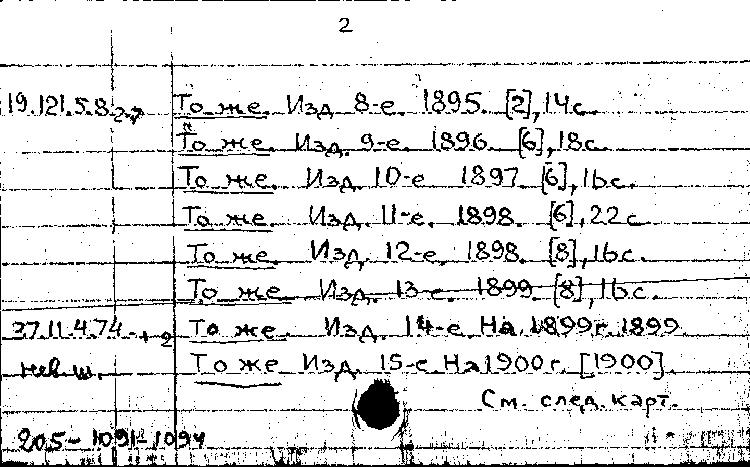 2
19.121.5.8 2-7 То же. Изд 8-е. 1895. [2], 14 с.
То же. Изд. 9-е. 1896. [6], 18 с.
То же. Изд. 10-е 1897. [6], 16 с.
То же. Изд. 11-е. 1898. [6], 22 с
То же. Изд. 12-е. 1898. [8], 16 с.
То же. Изд. 13-е. 1899. [8], 16 с.
37.11.4.74 То же. Изд. 14-е. На 1899 г. 1899.
То же Изд. 15-е На 1900 г. [1900].
См. след. карт.
205-1091-1094